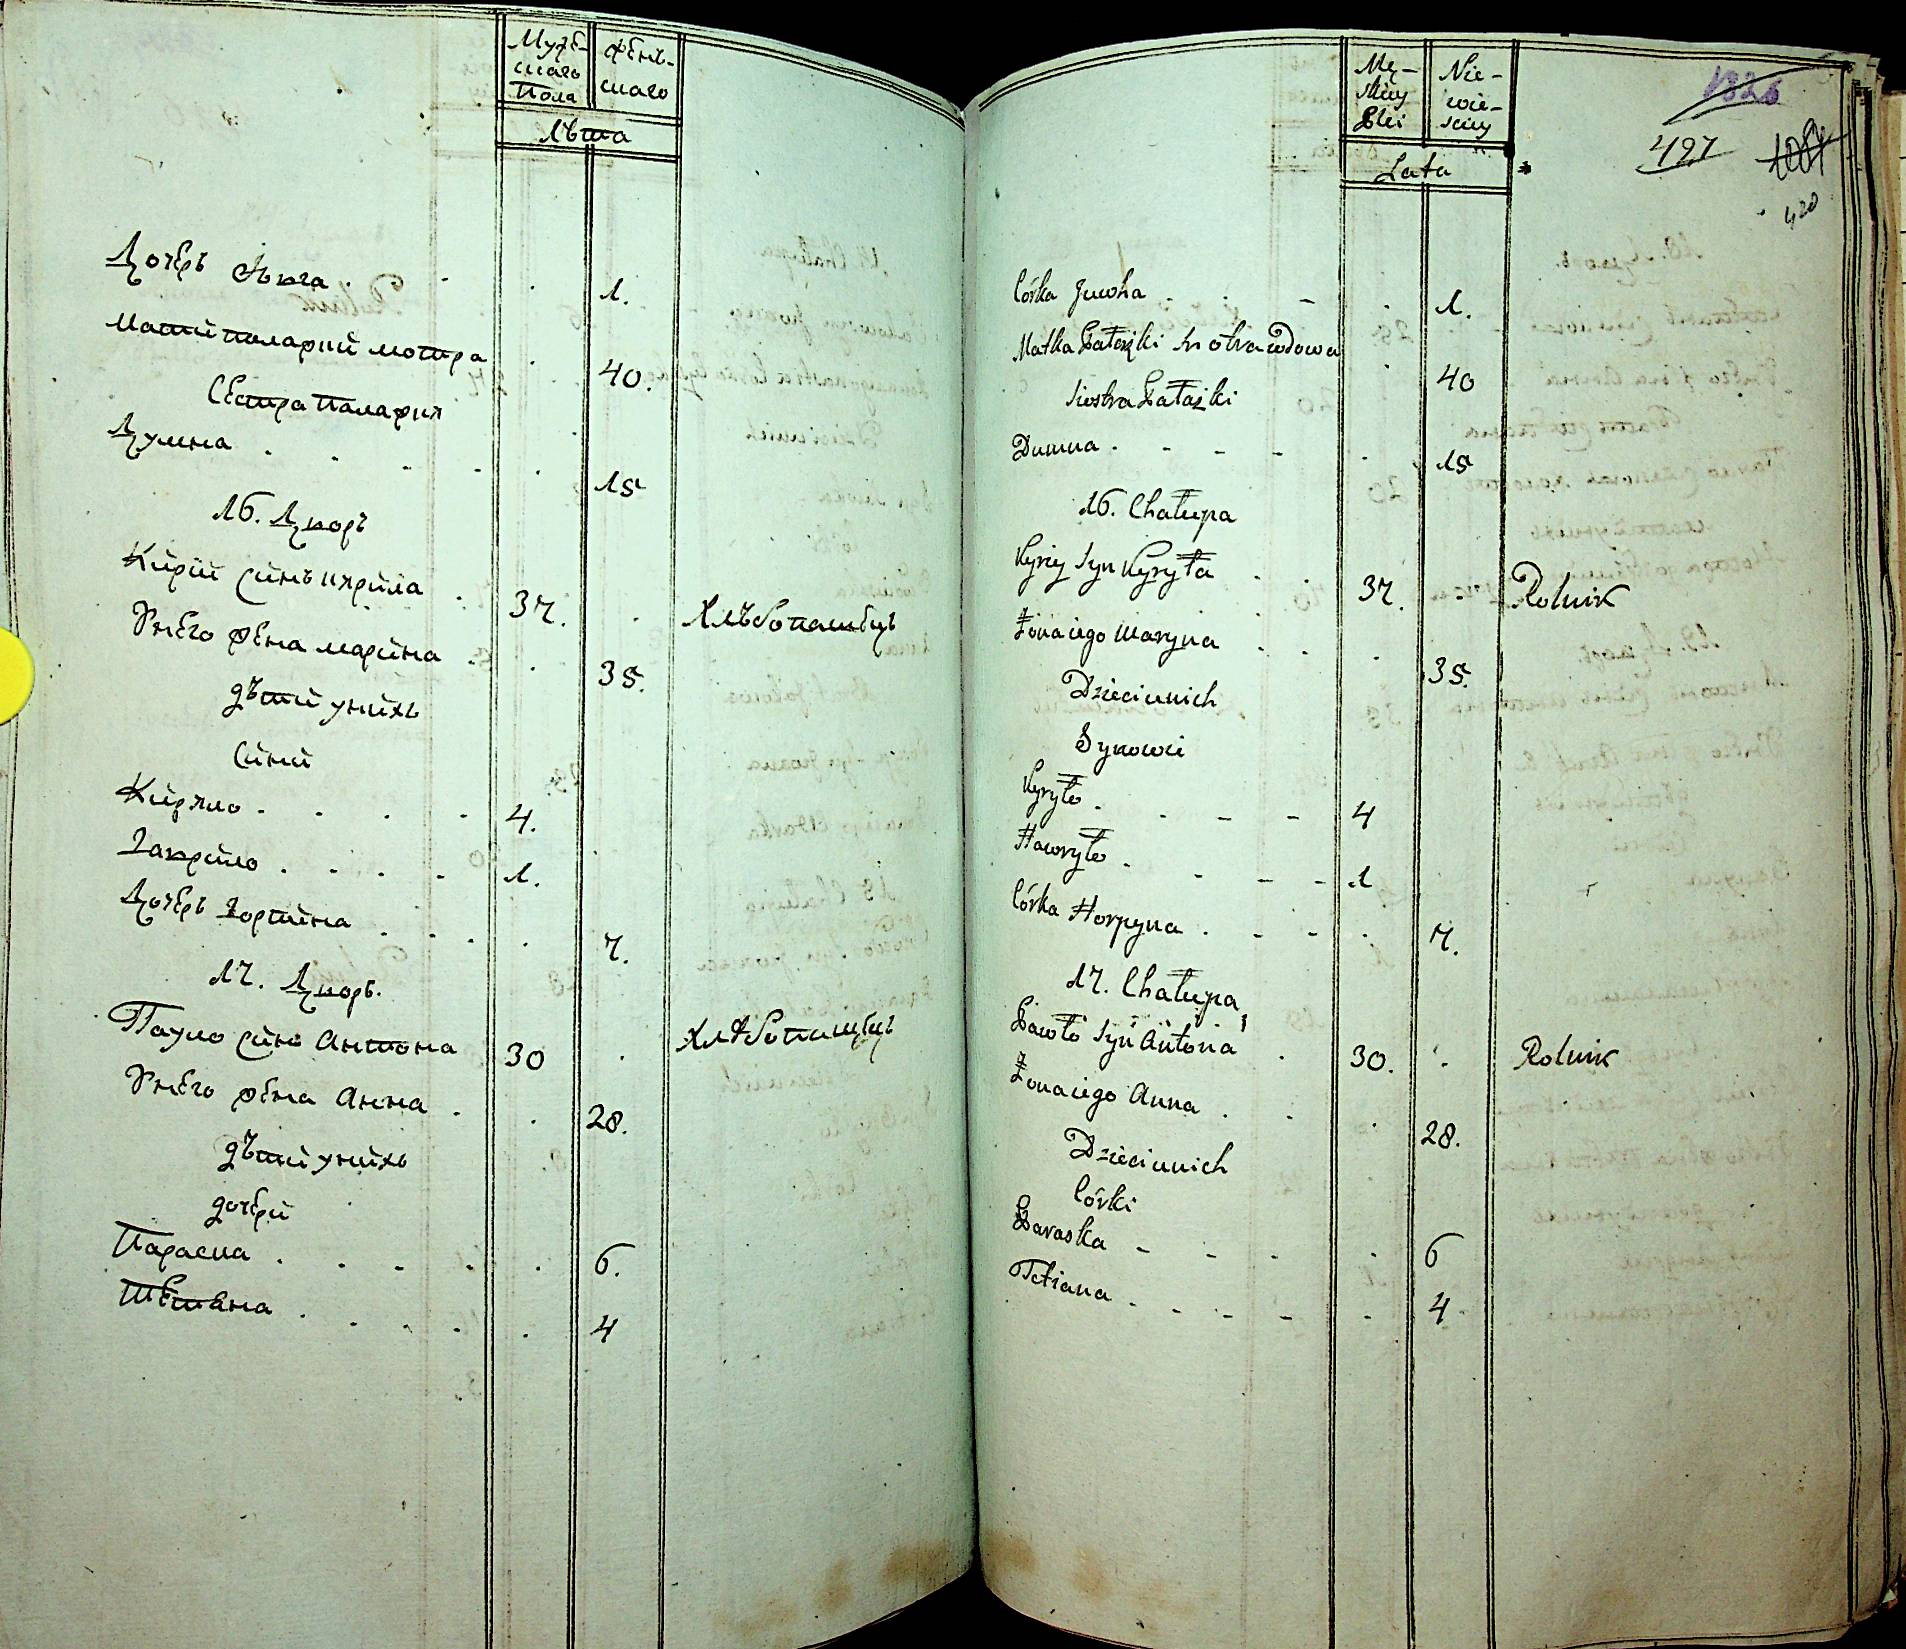 Мужес-
скаго
Пола
Женъ-
скаго
Лѣта
Дочерь Явга . . . 1.
Матй палажкй мотра . 40.
Сестра Палажки
Думна . . . . . . 15
16. Дворъ
Кирій Синъ кирйла . 37. . Хлѣбопашецъ
Унего жена марйна . . 35.
дѣтй унйхъ
Сйнй
Кйрило . . . . 4.
Гаврйло . . . . 1.
Дочерь Горпйна . . . . 7.
17. Дворъ.
Павло сйнъ Антона 30 . Хлѣбопашецъ
Унего жена Анна . . 28.
дѣтй унйхъ
дочерй
Параска . . . . . 6.
Тетяна . . . . . 4
Mę-
skiey
Płci
Nie-
wie-
sciey
Lata
1826
497
420
Córka Juwha . - . 1.
Matka Pałaszki Motra wdowa . 40
Siostra Pałaszki
Dumna . - - - . 15
16. Chałupa
Kyriey Syn Kyryła . . 37. Rolnik
Żona iego Maryna . . . 35.
Dzieci u nich
Synowie
Kyryło . . - - 4
Hawryło . - - - 1
Córka Horpyna . - - . 7.
17. Chałupa
Pawło Syn Antona . 30. . Rolnik
Żona iego Anna . . . 28.
Dzieci u nich
Córki
Paraska - - - . 6
Tetiana . - - - - . 4